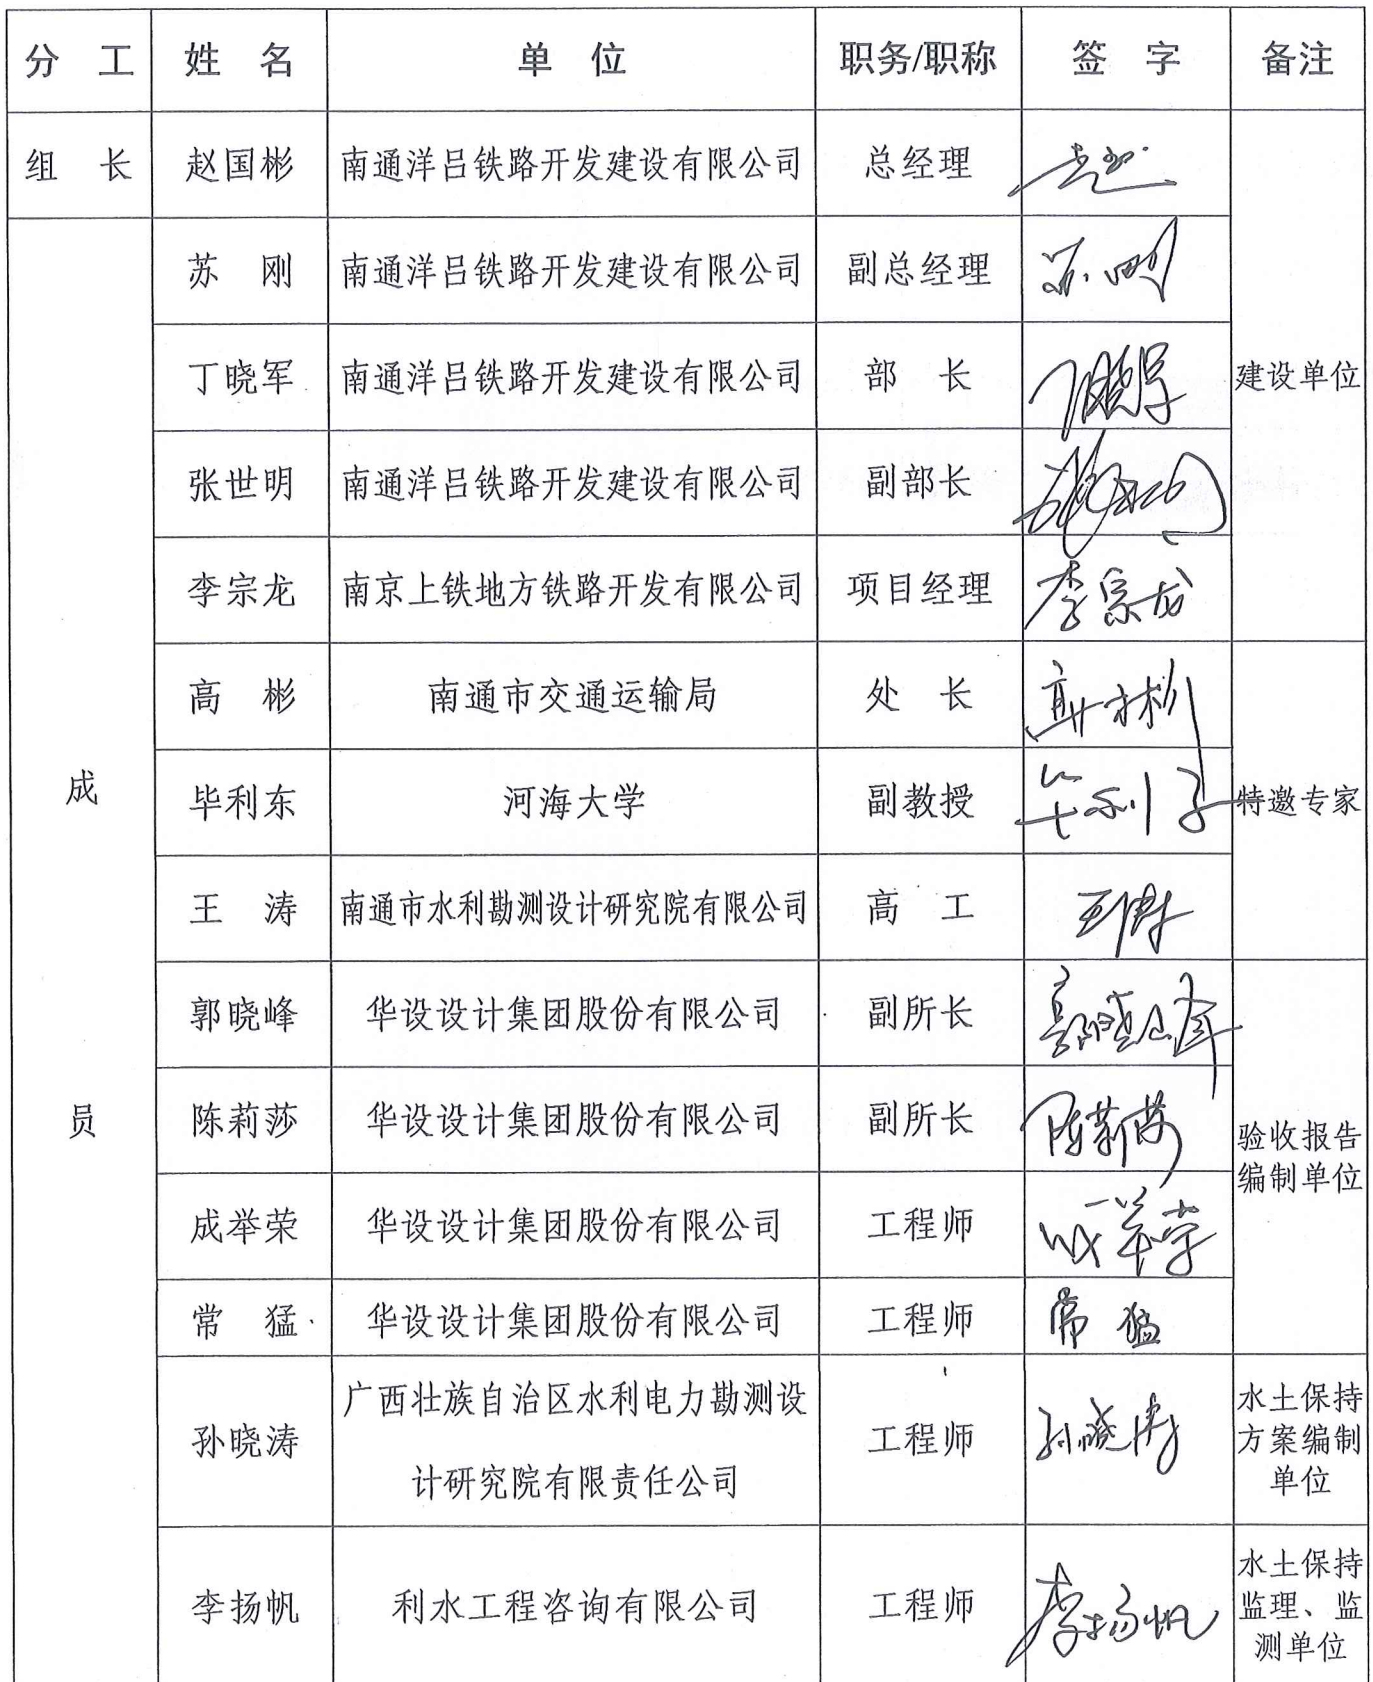 分 工 姓 名 单 位 职务/职称 签 字 备注
组 长 赵国彬 南通洋吕铁路开发建设有限公司 总经理
苏 刚 南通洋吕铁路开发建设有限公司 副总经理 苏刚
丁晓军 南通洋吕铁路开发建设有限公司 部 长 丁晓军 建设单位
张世明 南通洋吕铁路开发建设有限公司 副部长
李宗龙 南京上铁地方铁路开发有限公司 项目经理 李宗龙
高 彬 南通市交通运输局 处 长 高彬
成
毕利东 河海大学 副教授 毕利东 特邀专家
王 涛 南通市水利勘测设计研究院有限公司 高 工 王涛
郭晓峰 华设设计集团股份有限公司 副所长 郭晓峰
员
陈莉莎 华设设计集团股份有限公司 副所长 陈莉莎
验收报告
编制单位
成举荣 华设设计集团股份有限公司 工程师 成举荣
常 猛 华设设计集团股份有限公司 工程师 常猛
孙晓涛
广西壮族自治区水利电力勘测设
计研究院有限责任公司
工程师 孙晓涛
水土保持
方案编制
单位
李扬帆 利水工程咨询有限公司 工程师 李扬帆
水土保持
监理、监
测单位